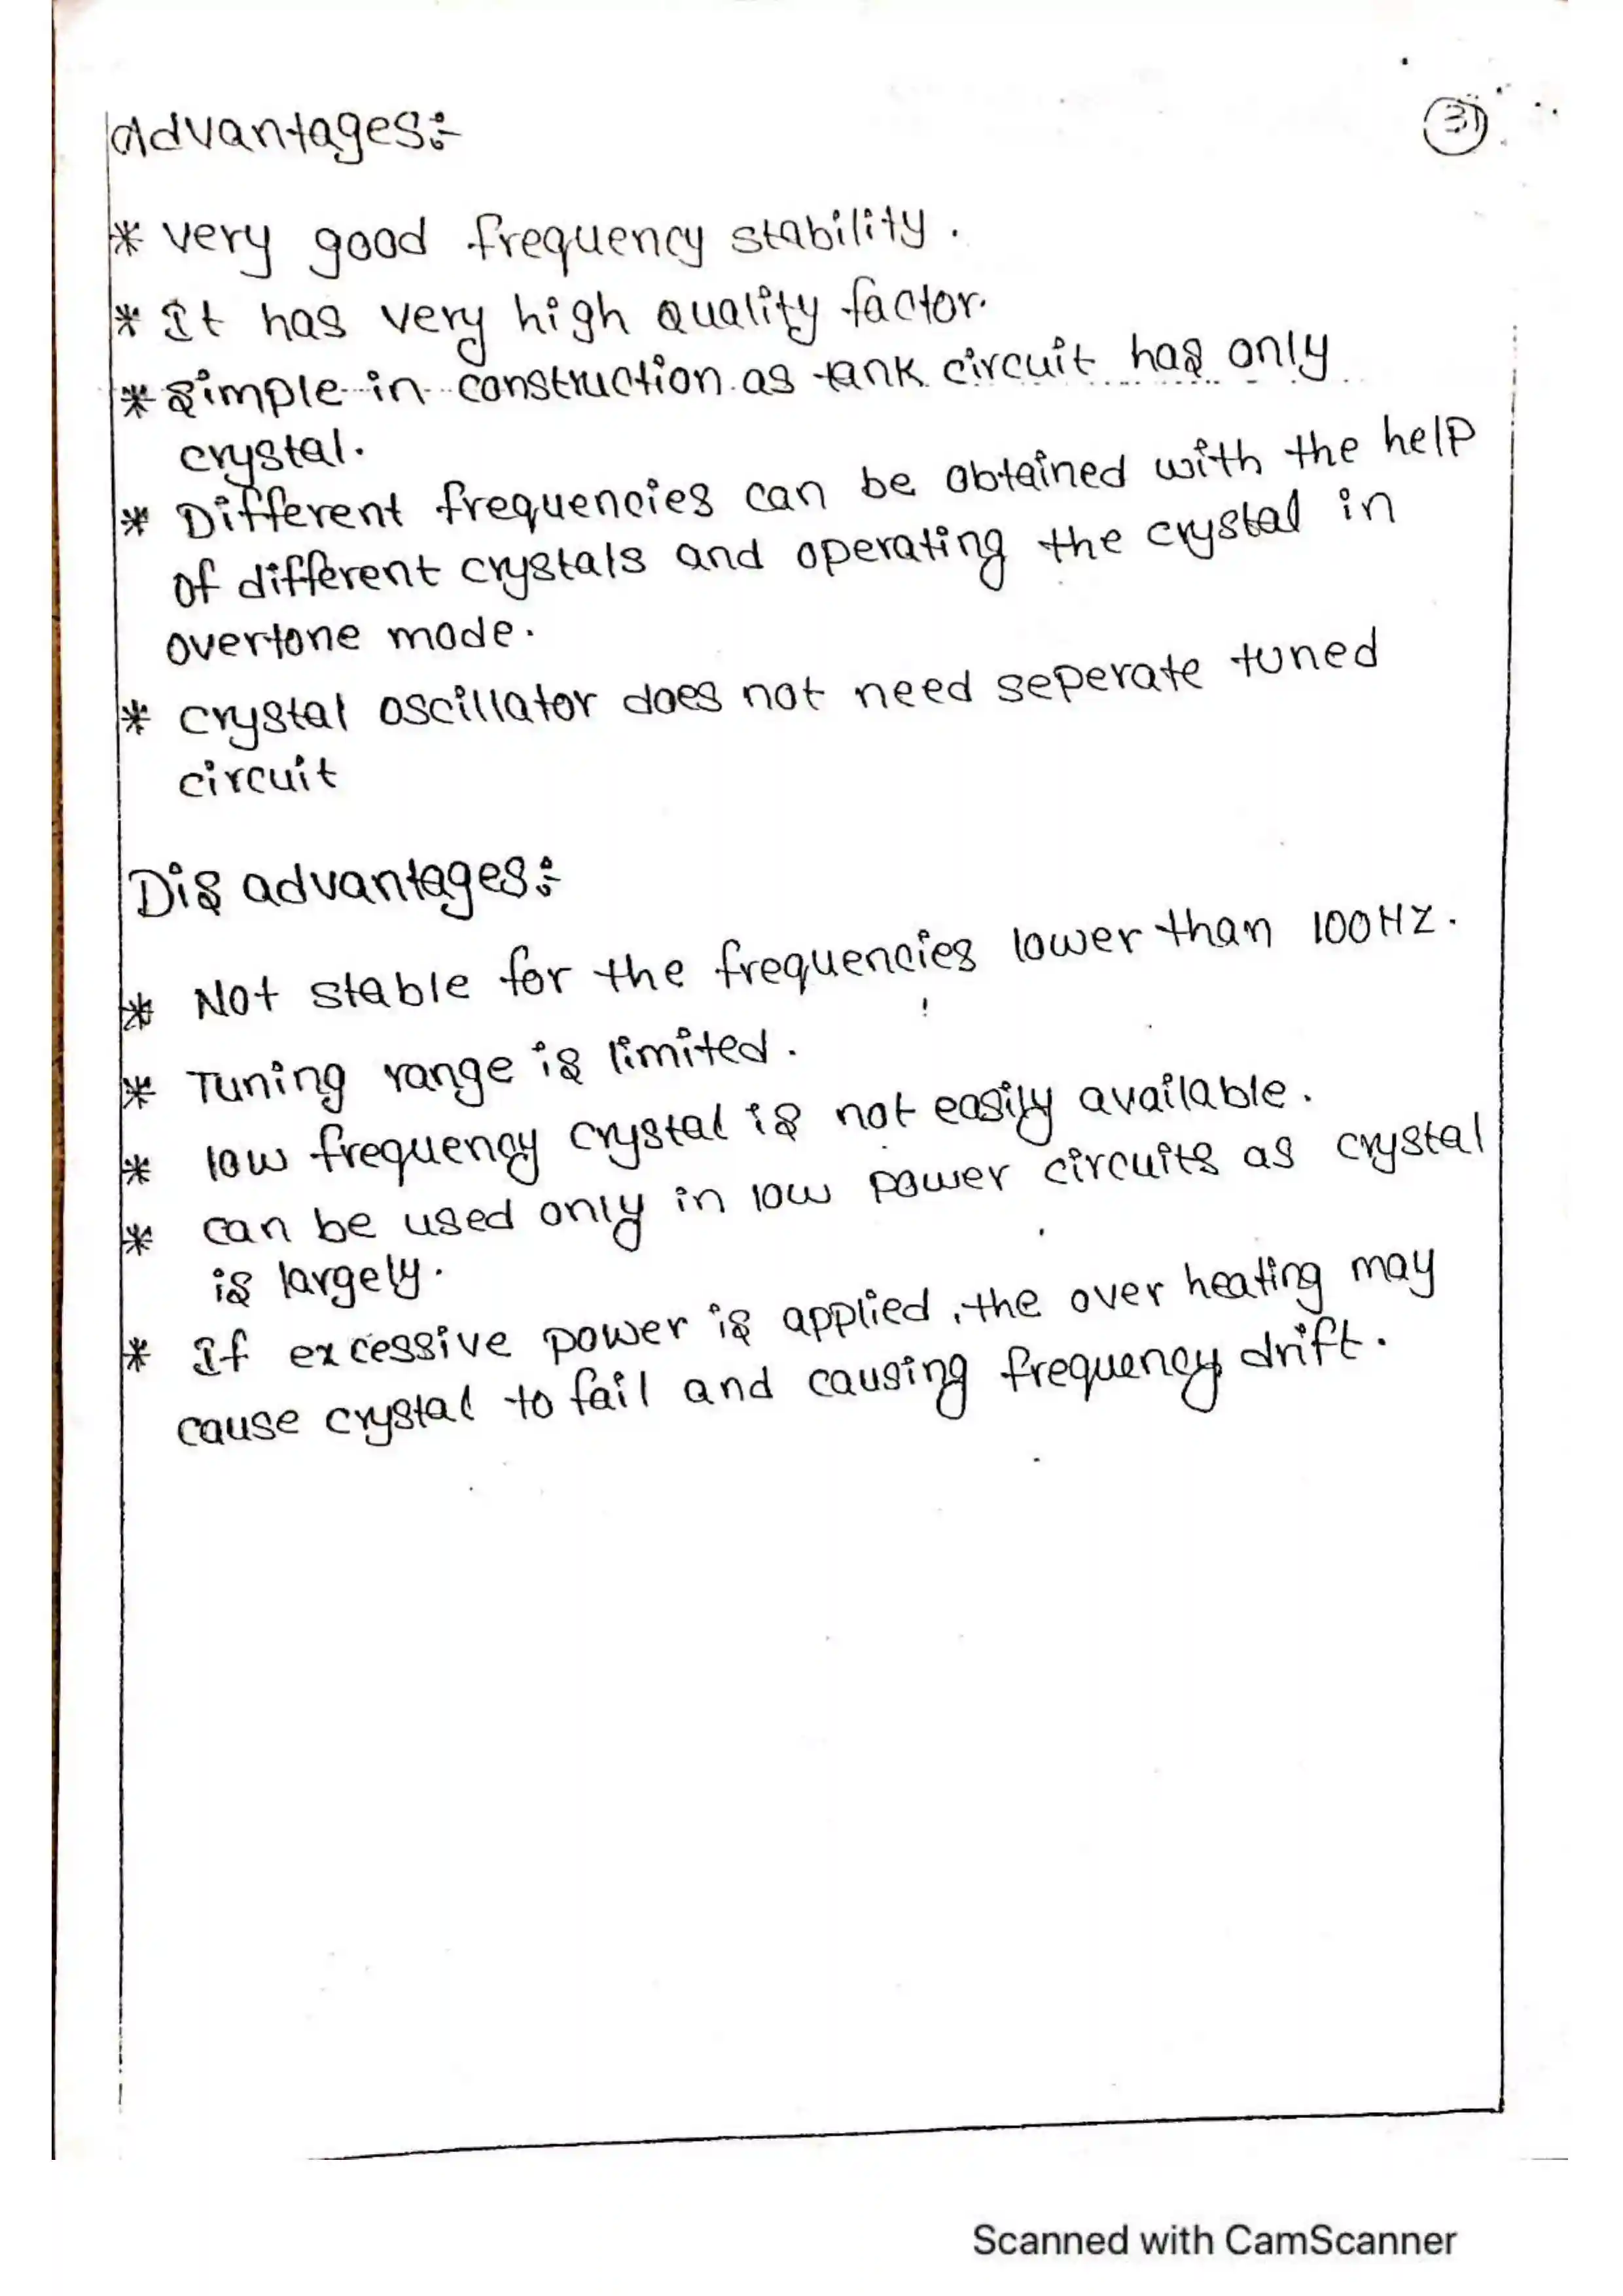 Advantages:-
31
* very good frequency stability.
* It has very high quality factor.
* Simple in construction as tank circuit has only
crystal.
* Different frequencies can be obtained with the help
of different crystals and operating the crystal in
overtone mode.
* crystal oscillator does not need seperate tuned
circuit
Dis advantages:-
* Not stable for the frequencies lower than 100HZ.
* Tuning range is limited.
* low frequency crystal is not easily available.
* can be used only in low power circuits as crystal
is largely.
* If excessive power is applied, the over heating may
cause crystal to fail and causing frequency drift.
Scanned with CamScanner